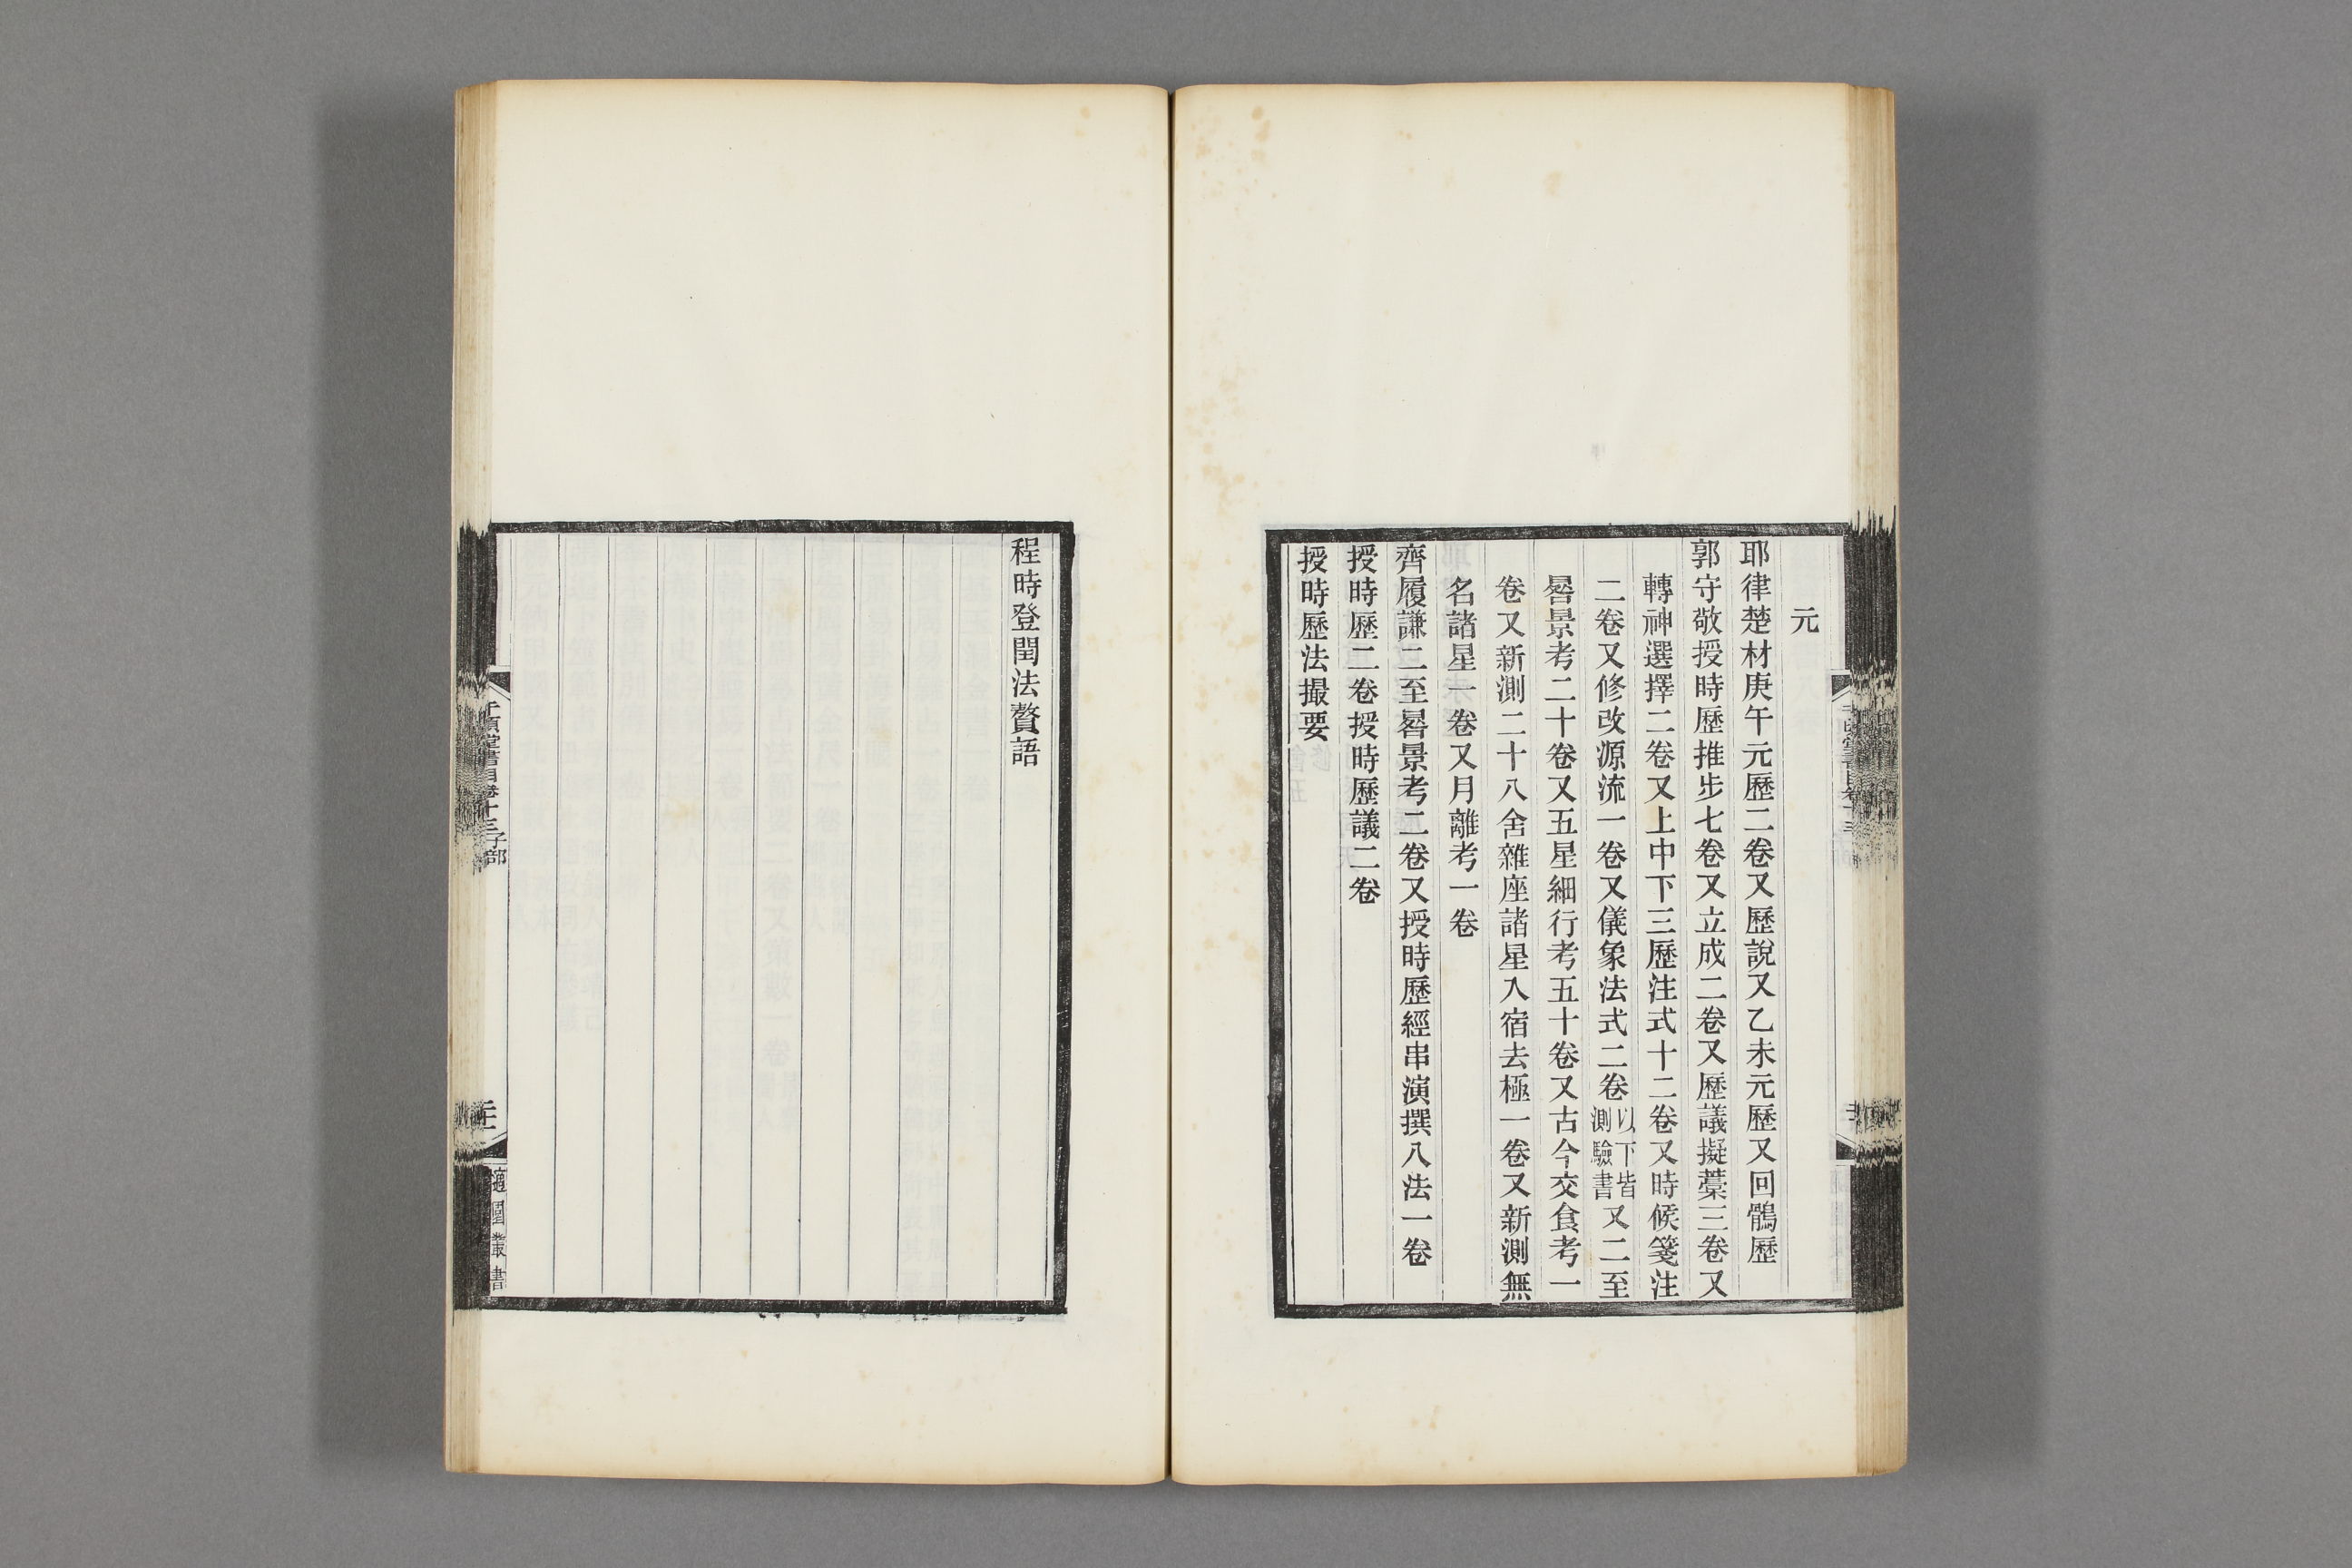 元
耶律楚材庚午元歷二卷又歷說又乙未元歷又回鶻歷
郭守敬授時歷推步七卷又立成二卷又歷議擬藁三卷又
轉神選擇二卷又上中下三歷注式十二卷又時候箋注
二卷又修改源流一卷又儀象法式二卷以下皆測驗書又二至
晷景考二十卷又五星細行考五十卷又古今交食考一
卷又新測二十八舍雜座諸星入宿去極一卷又新測無
名諸星一卷又月離考一卷
齊履謙二至晷景考二卷又授時歷經串演撰八法一卷
授時歷二卷授時歷議二卷
授時歷法撮要
程時登閏法贅語
千頃堂書目卷十三子部
適園叢書